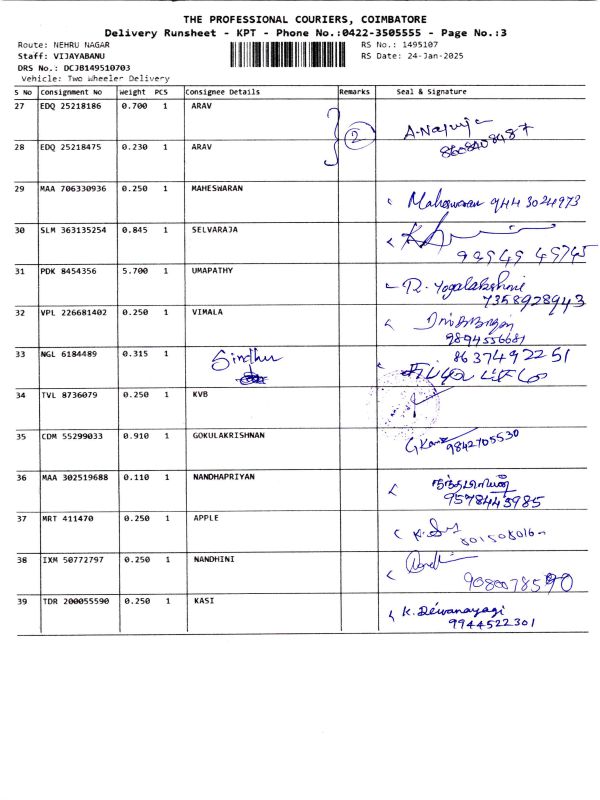 THE PROFESSIONAL COURIERS, COIMBATORE
Delivery Runsheet - KPT - Phone No.:0422-3505555 - Page No.:3
Route: NEHRU NAGAR RS No.: 1495107
Staff: VIJAYABANU RS Date: 24-Jan-2025
DRS No.: DCJB149510703
Vehicle: Two Wheeler Delivery
S No Consignment No Weight PCS Consignee Details Remarks Seal & Signature
27 EDQ 25218186 0.700 1 ARAV
2
8608408487
28 EDQ 25218475 0.230 1 ARAV
29 MAA 706330936 0.250 1 MAHESWARAN Maheswaran 9443024973
30 SLM 363135254 0.845 1 SELVARAJA
98949 49745
31 PDK 8454356 5.700 1 UMAPATHY R. Yogalakshmi
7358928943
32 VPL 226681402 0.250 1 VIMALA
9894556681
33 NGL 6184489 0.315 1 Sindhu 8637492251
34 TVL 8736079 0.250 1 KVB
35 CDM 55299033 0.910 1 GOKULAKRISHNAN
9842705530
36 MAA 302519688 0.110 1 NANDHAPRIYAN
9578445985
37 MRT 411470 0.250 1 APPLE
38 IXM 50772797 0.250 1 NANDHINI
39 TDR 200055590 0.250 1 KASI K. Dewanayagi
9944522301